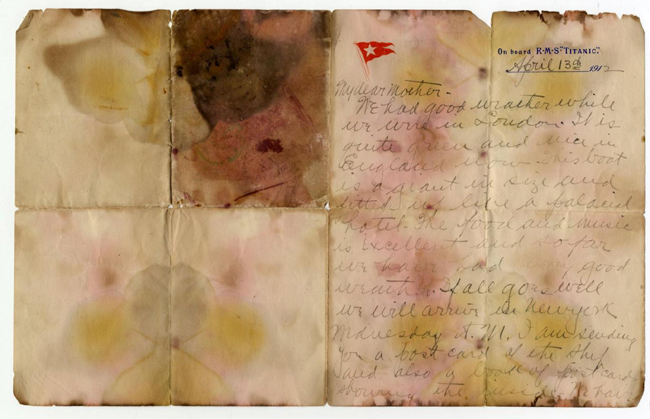 On board R·M·S "TITANIC".
April 13th 1912
My dear Mother -
We had good weather while
we were in London. It is
quite green and nice in
England now. This boat
is a giant in size and
fitted up like a
hotel. The food and music
is excellent and so far
we have had good
weather. If all goes well
we will arrive in New York
Wednesday A. M. I am sending
you a post card of the ship
and also a book of post cards
showing the inside